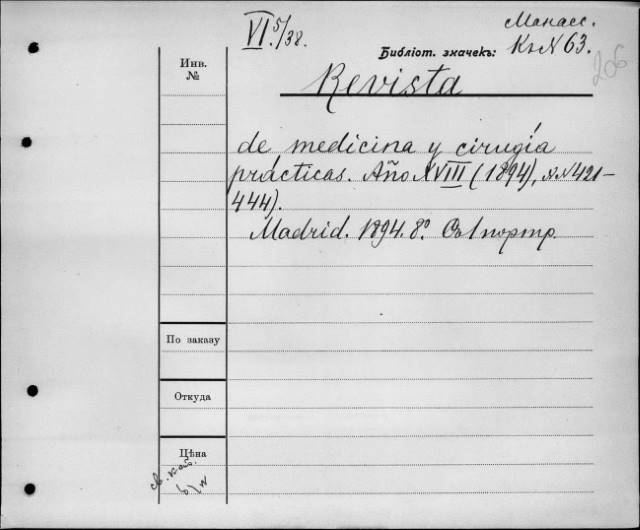 VI 5/38.
Манасс.
Библіот. значекъ: Кн N 63.
206
Инв. №
Revista
de medicina y cirugía
prácticas. Año XVIII (1894), NN 421–
444).
Madrid. 1894. 8º. Съ 1 портр.
По заказу
Откуда
Цѣна
св. каб.
б/н